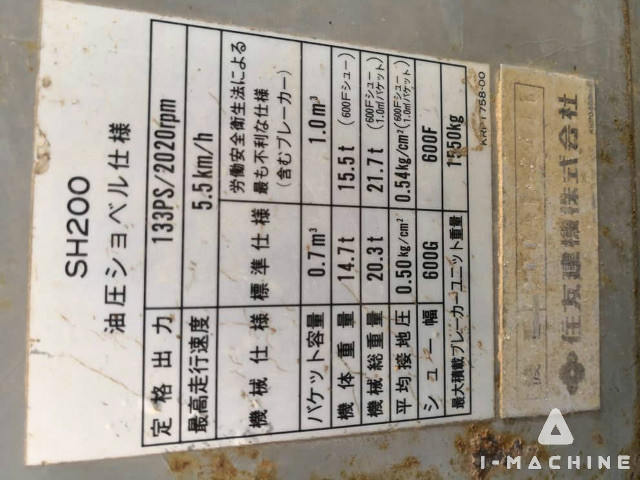 SH200
油圧ショベル仕様
定格出力 133PS/2020rpm
最高走行速度 5.5km/h
機械仕様 標準仕様 労働安全衛生法による
最も不利な仕様
(含むブレーカー)
バケット容量 0.7m³ 1.0m³
機体重量 14.7t 15.5t (600Fシュー)
機械総重量 20.3t 21.7t (600Fシュー 1.0m³バケット)
平均接地圧 0.50kg/cm² 0.54kg/cm² (600Fシュー 1.0m³バケット)
シュー幅 600G 600F
最大積載ブレーカーユニット重量 1550kg
KRP1758-00
住友建機株式会社
I-MACHINE